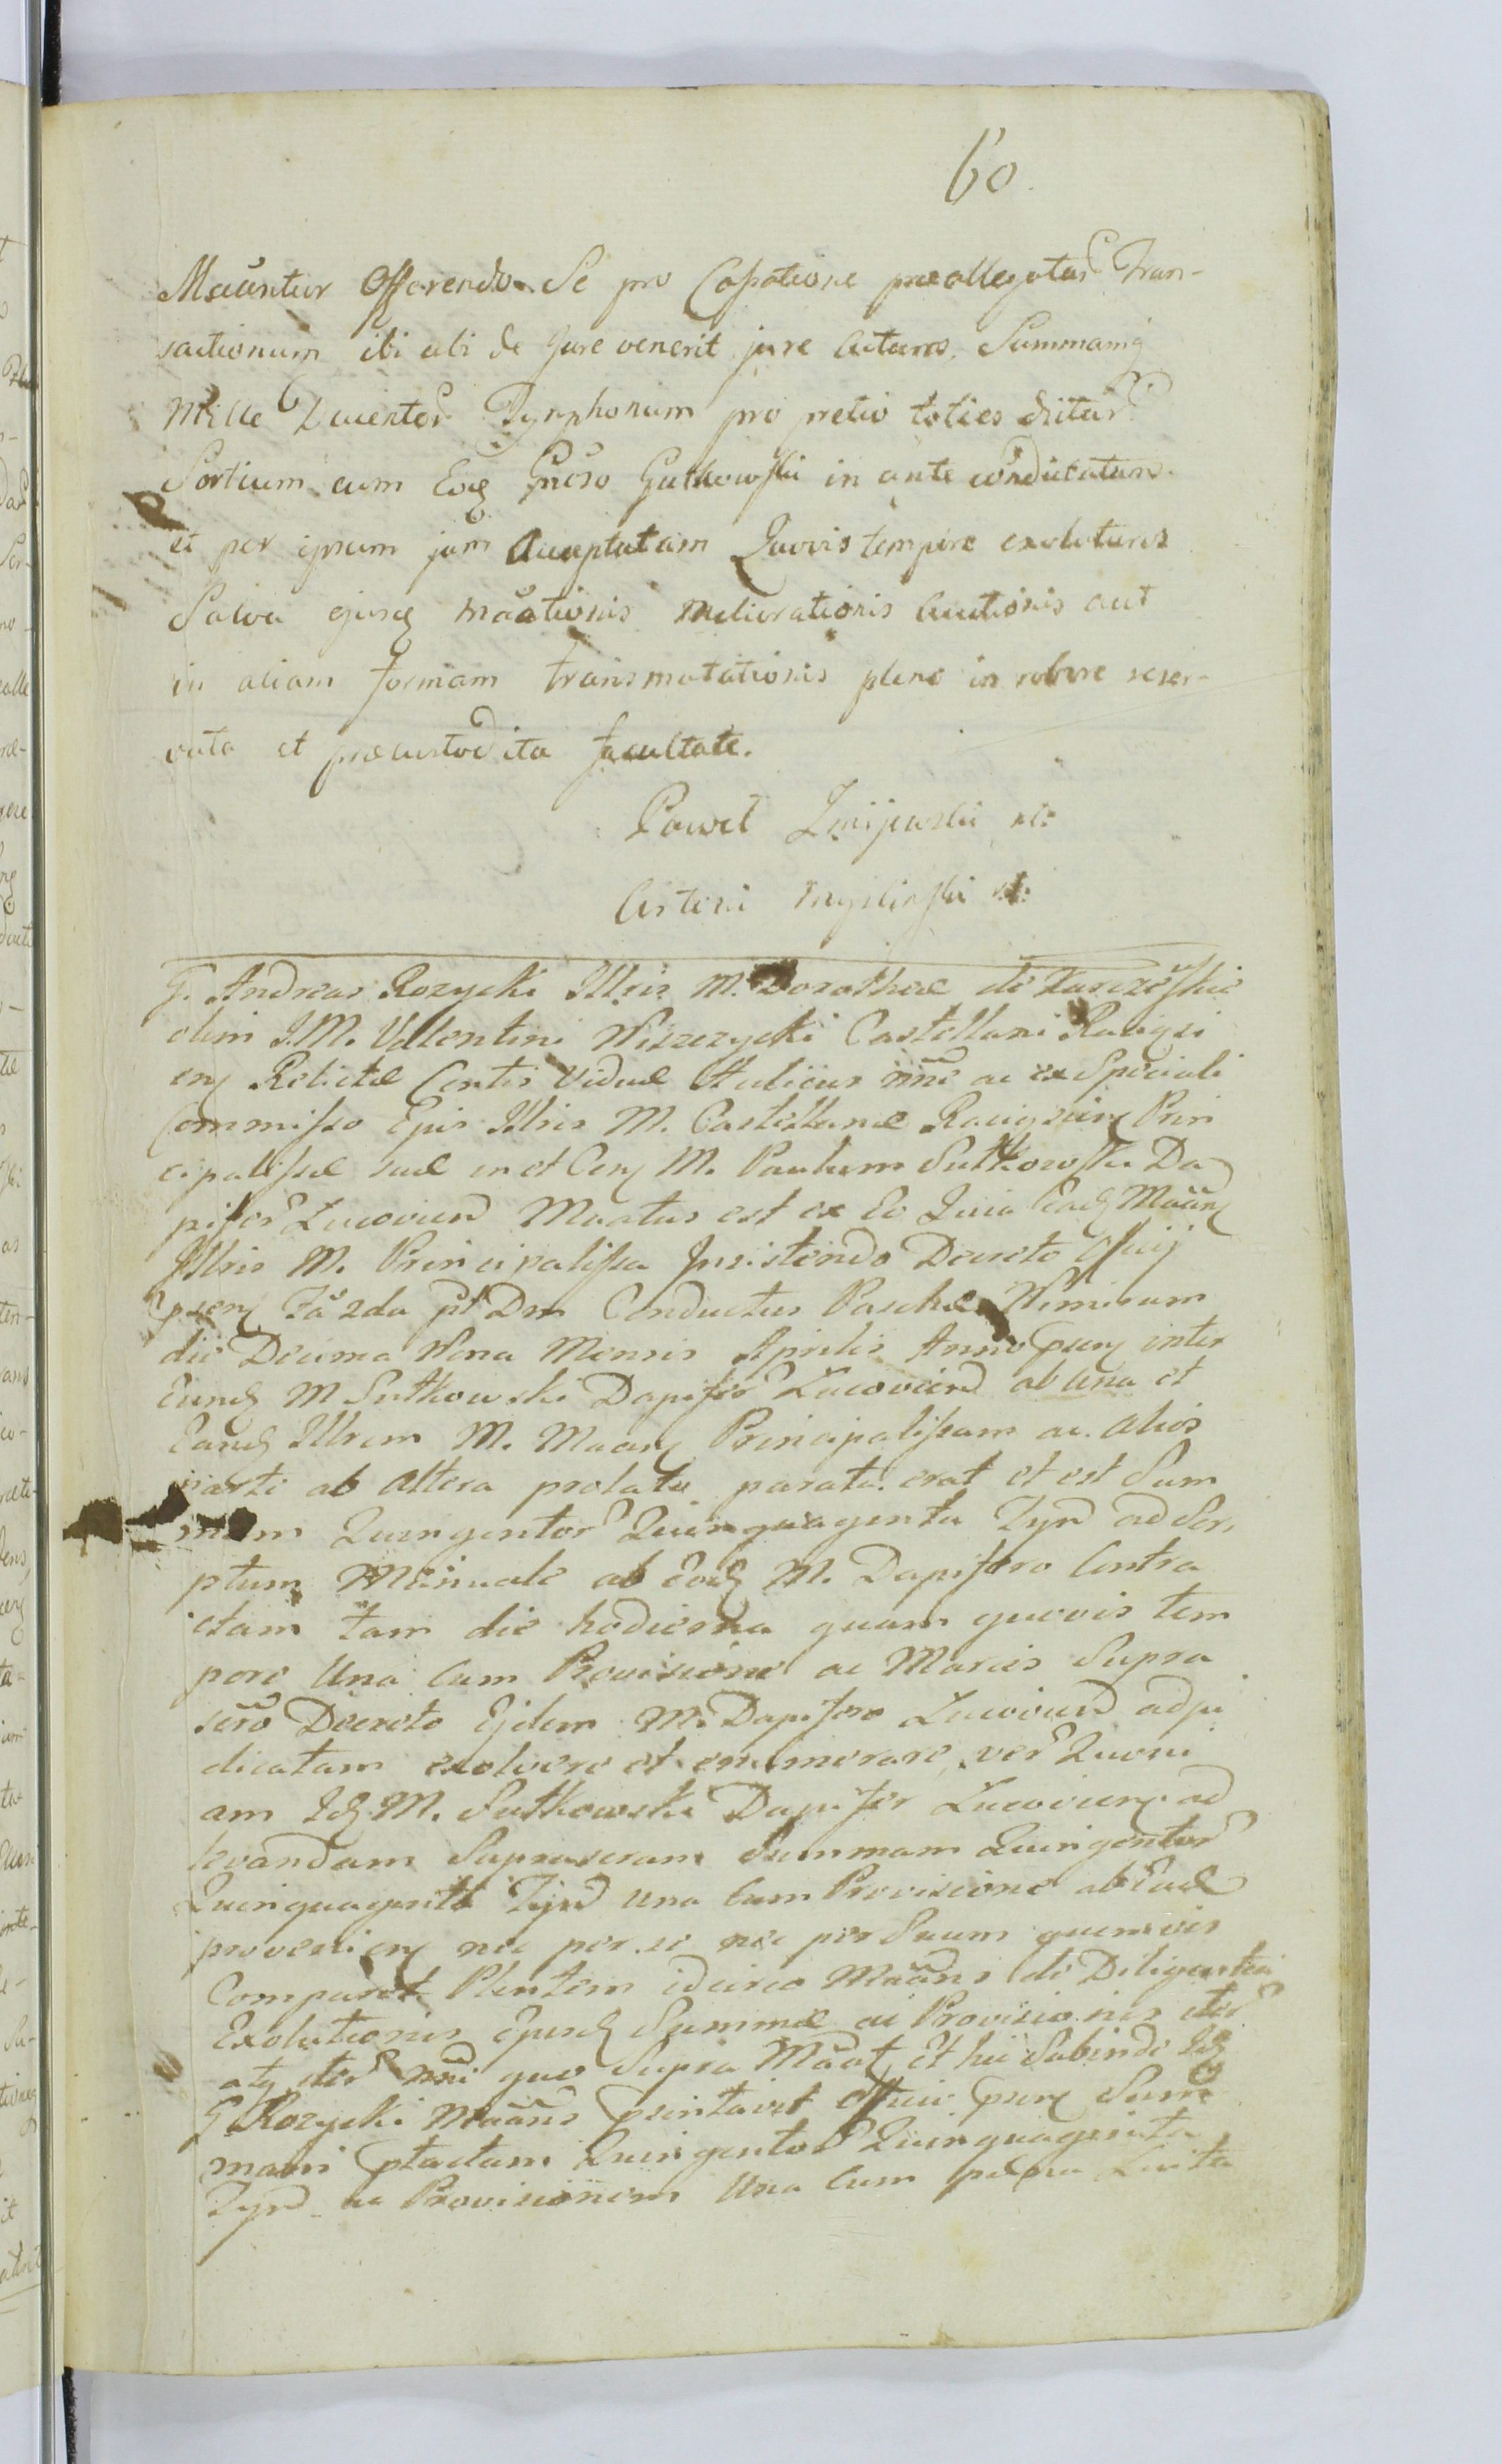 60.
Mauntur Offerendo Se pro Cassatione praeallegatar Tran-
sactionum ibi ubi de Jure venerit jure Acturos, Summamq
Mille Ducentor Tynphonum pro pretio toties dictar
Sortium cum Eoq Gnoso Gutkowski in ante condictatam
et per ipsum jam Acceptatam Quovis tempore exoluturos
Salva ejusq maationis meliorationis Auctionis aut
in aliam formam transmutationis plene in robore reser-
vata et praecustodita facultate.
Paweł Zmijewski m:
Antoni Mysliński m:
G. Andreas Rozycki Illris M. Dorotheae de
olim I.M. Valentini Niszczycki Castellani Raciązi
enq Relictae Contis Viduae Aulicus nne ac ex Speciali
Commisso Ejus Illris M. Castellanae Raciązienq Prin
cipalissae suae in et Cenq M. Paulum Sutkowski Da
piferr Lucovien Maatus est ex Eo Quia Eadq Maanq
Illris M. Principalissa Insistendo Decreto Officij
psenq Fa 2da pt Dm Conductus Paschae Nimirum
die Decima Nona Mensis Aprilis Anno psenq inter
Eundq M Sutkowski Dapifer Lucovien ab Una et
Eandq Illrem M. Maanq Principalissam ac Alios
parte ab Altera prolato parata erat et est Sum
mam Quingentor Quinquaginta Tyn ad Scri
ptum Manuale ab Eodq M. Dapifero Contra
ctam tam die hodierna quam quovis tem
pore Una Cum Provisione ac Marcis Supra
scro Decreto Ejdem M. Dapifero Lucovien adju
dicatam exolvere et enumerare, ver Quoni
am Idq M. Sutkowski Dapifer Lucovienq ad
levandam Suprascram Summam Quingentor
Quinquaginta Tyn una Cum Provisione ab Ead
provenienq nec per se nec per Suum quemvis
Comparet Plentem idcirco Maans de Diligentia
Exolutionis Ejusdq Summae ac Provisionis iter
atq iter nne quo Supra Maat, Et hic Subinde Idq
G. Rozycki Maans psentavit Officio psenq Sum
mam ptactam Quingentor Quinquaginta
Tyn ac Provisionem Una Cum